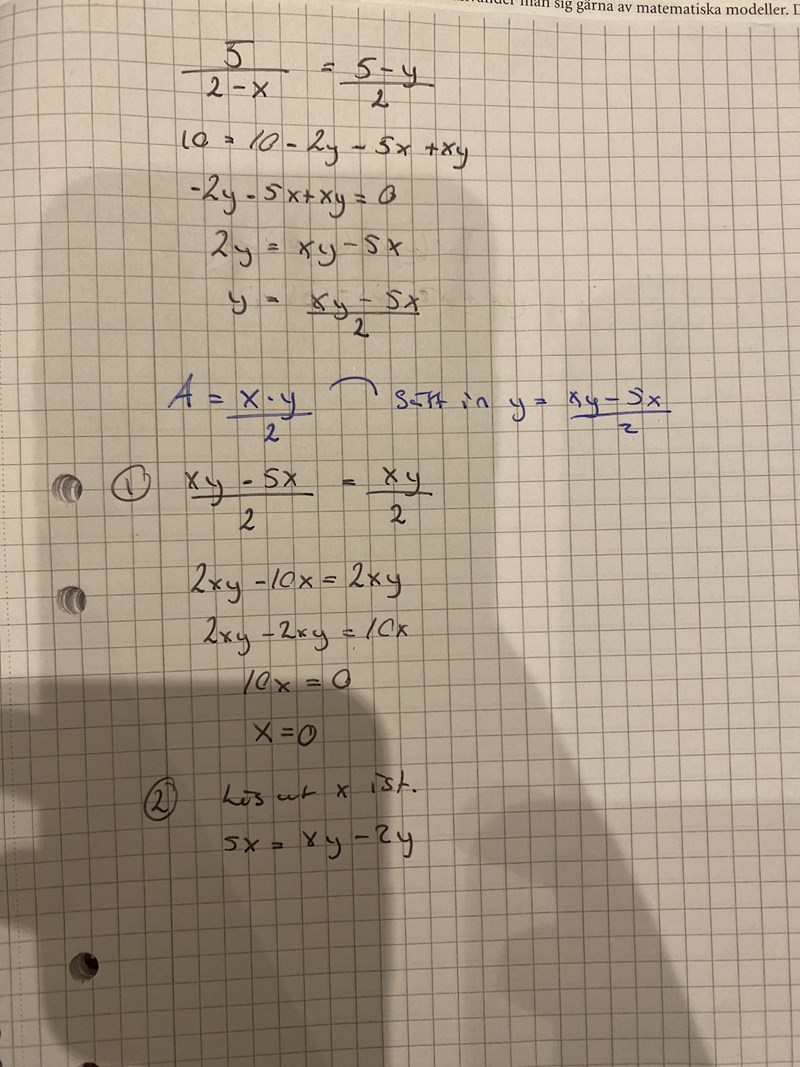 man sig gärna av matematiska modeller. D
5/(2-x) = (5-y)/2
10 = 10 - 2y - 5x + xy
-2y - 5x + xy = 0
2y = xy - 5x
y = (xy - 5x)/2
A = (x·y)/2 Sätt in y = (xy - 5x)/2
① (xy - 5x)/2 = xy/2
2xy - 10x = 2xy
2xy - 2xy = 10x
10x = 0
x = 0
② Lös ut x ist.
5x = xy - 2y